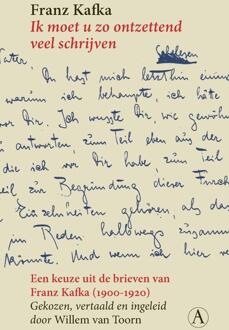 Franz Kafka
Ik moet u zo ontzettend
veel schrijven
Schelesen
Vater,
Du hast mich letzthin einma
warum ich behaupte, ich hätte
vor Dir. Ich wusste Dir, wie gewöh
antworten, zum Teil eben aus der
die ich vor Dir habe zum
eil zur Begründung dieser Furch
Einzelnheiten gehören, als das
im Reden halbwegs zusamm
könnte. Und wenn ich hier
Een keuze uit de brieven van
Franz Kafka (1900-1920)
Gekozen, vertaald en ingeleid
door Willem van Toorn
A